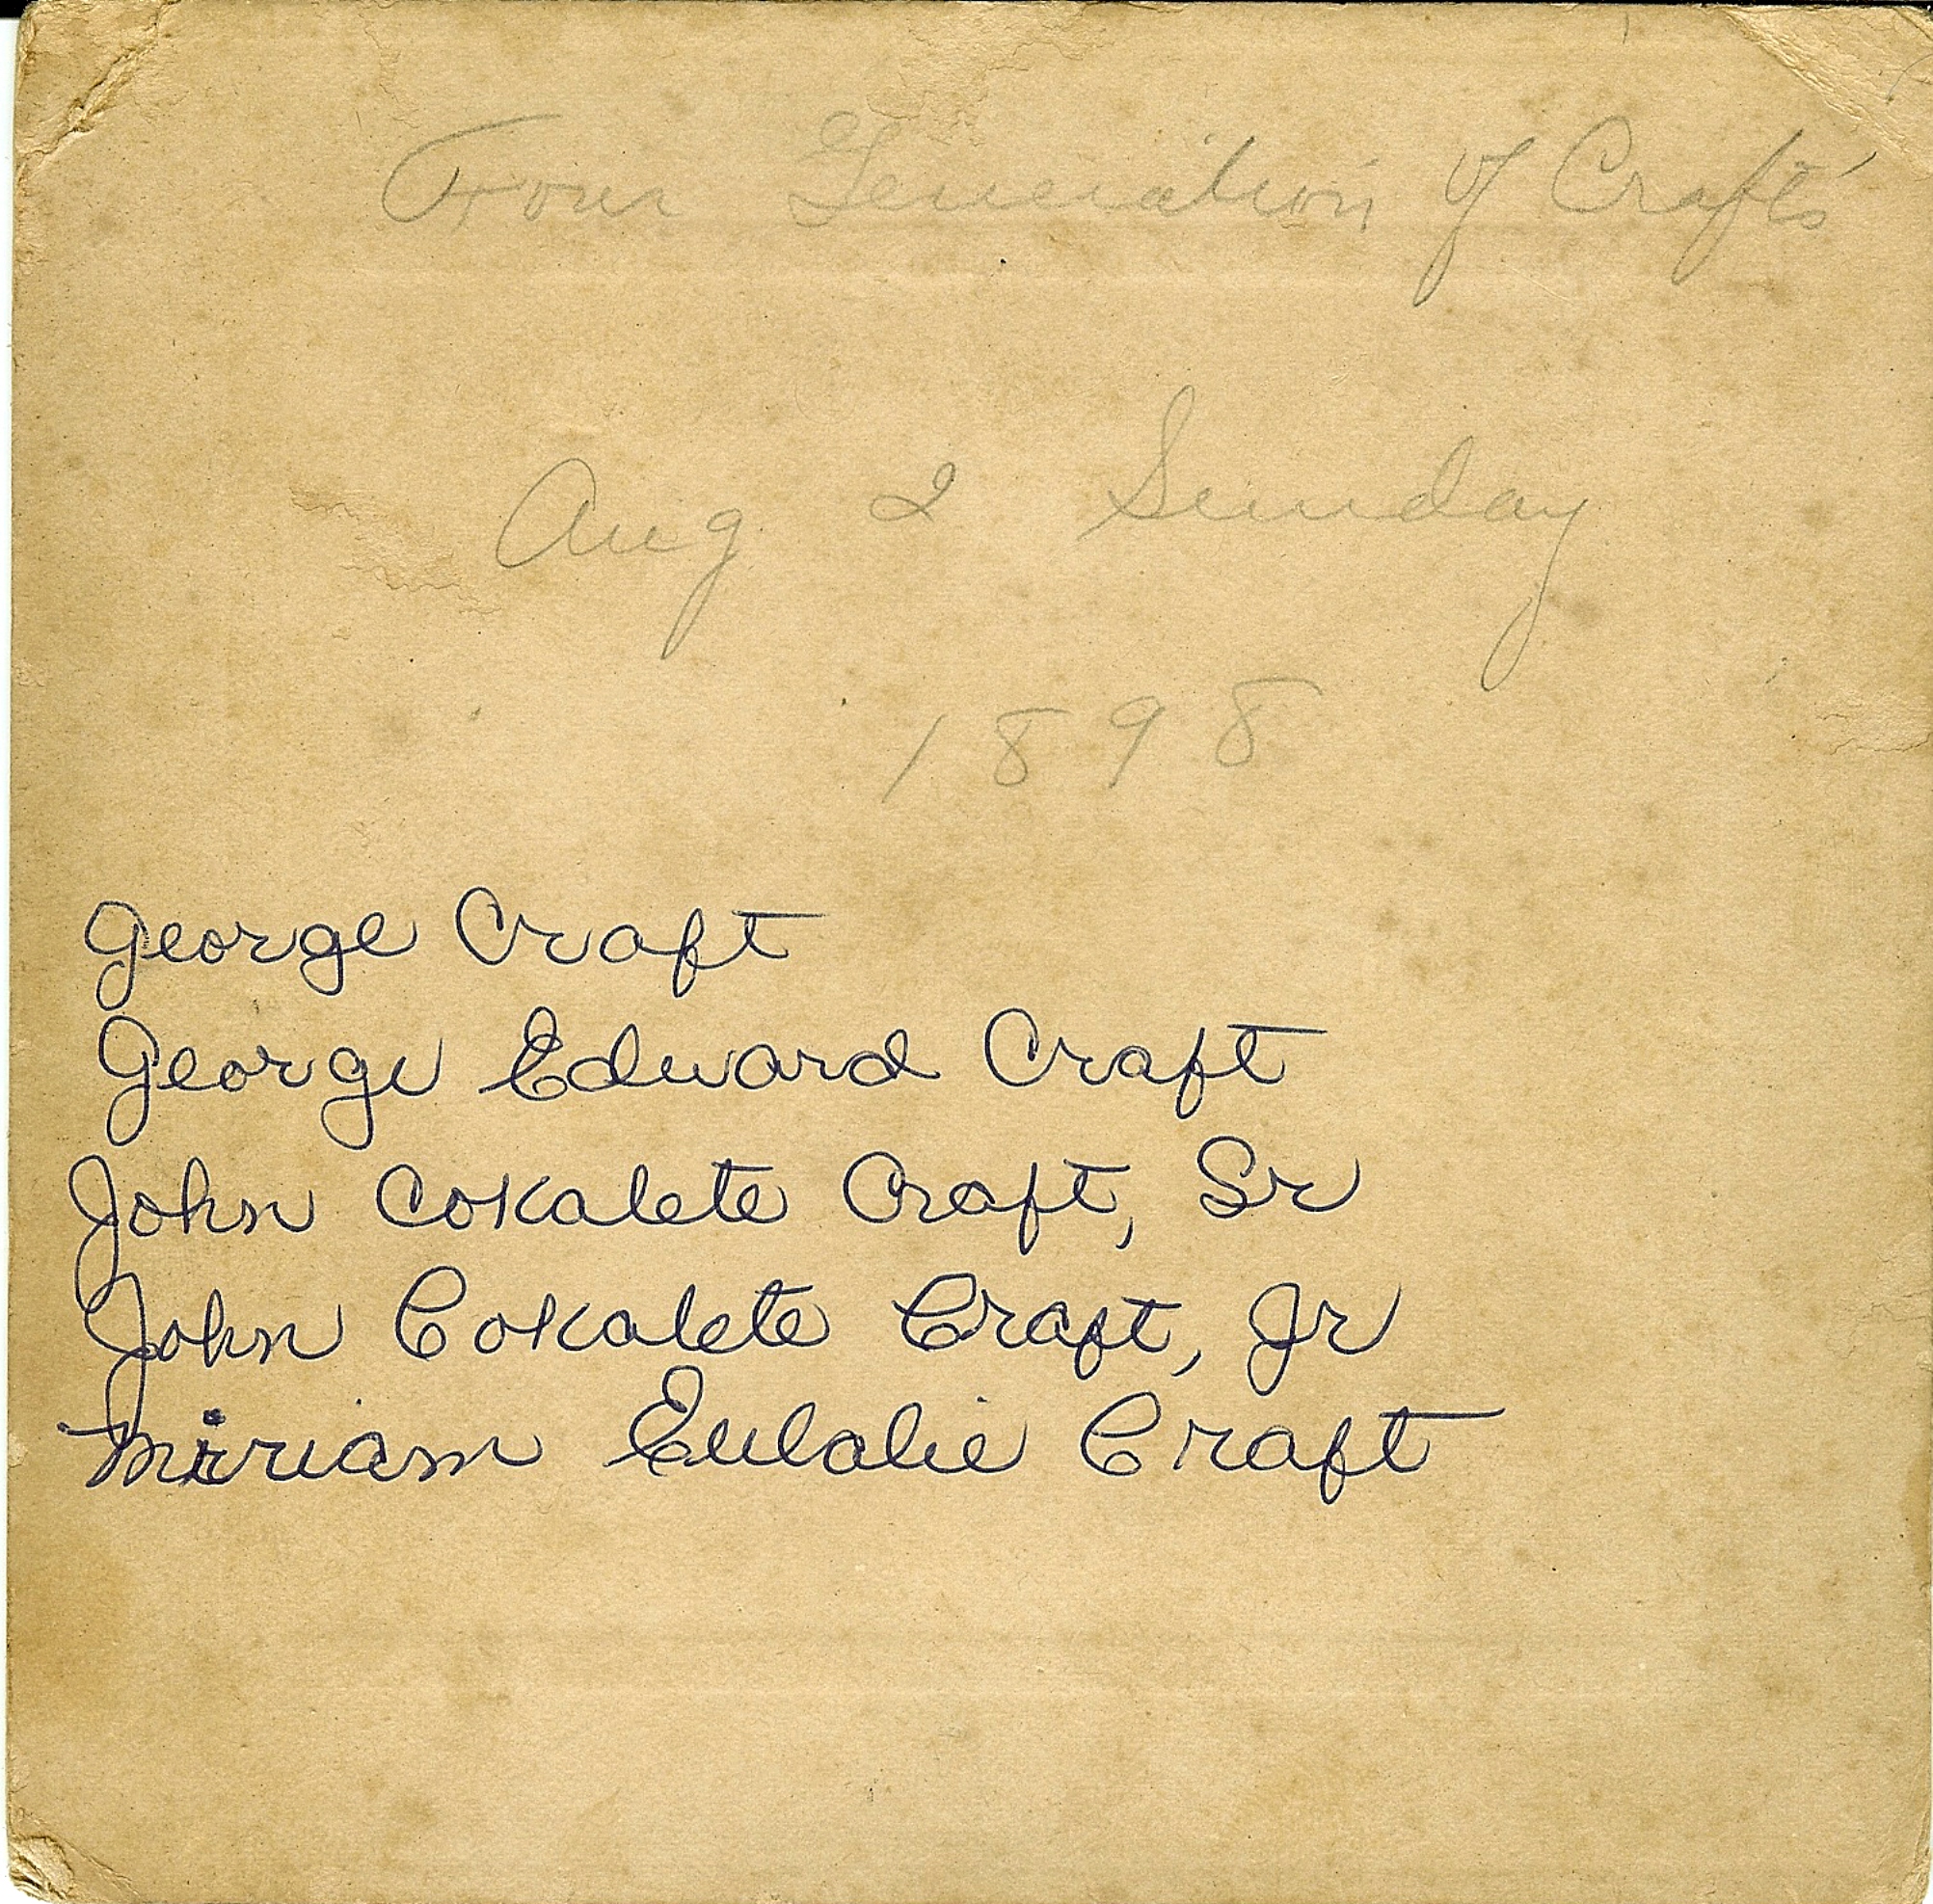 Four Generation of Crafts'
Aug 2 Sunday
1898
George Craft
George Edward Craft
John Cokalete Craft, Sr
John Cokalete Craft, Jr
Miriam Eulalie Craft